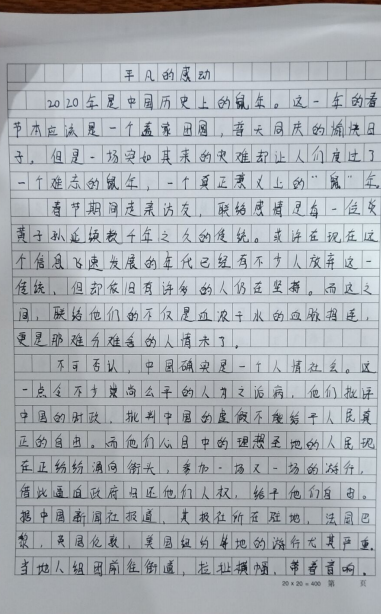 平凡的感动
2020年是中国历史上的鼠年。这一年的春
节本应该是一个盖家团圆,普天同庆的愉快日
子。但是一场突如其来的灾难却让人们度过了
一个难忘的鼠年,一个真正意义上的“鼠”年。
春节期间走亲访友,联络感情是每一位炎
黄子孙延续数千年之久的传统。或许在现在这
个信息飞速发展的年代已经有不少人放弃这一
传统,但却依旧有许多的人仍在坚持。而这之
间,联络他们的不仅是血浓于水的血脉相连,
更是那难分难舍的人情味了。
不可否认,中国确实是一个人情社会。这
一点令不少崇尚公平的人为之诟病,他们批评
中国的财政,批判中国的虚假不能给予人民真
正的自由。而他们心目中的理想圣地的人民现
在正纷纷涌向街头,参加一场又一场的游行,
借此逼迫政府归还他们人权,给予他们自由。
据中国新闻社报道,其报社所在驻地,法国巴
黎,英国伦敦,美国纽约等地的游行尤其严重。
当地人组团前往街道,拉扯横幅,带着音响。
20×20=400 第 页